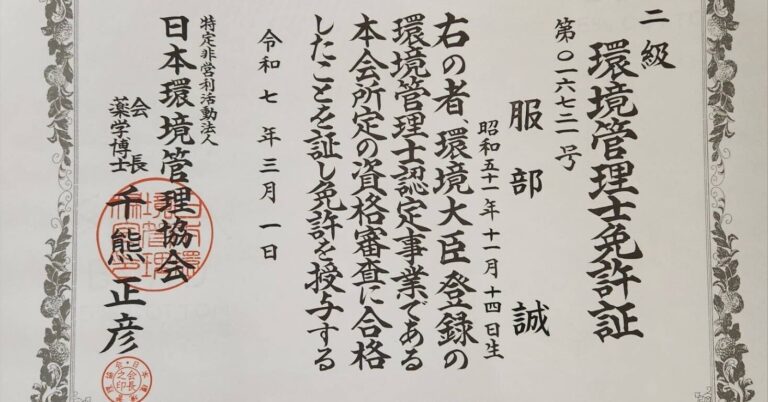 二級
環境管理士免許証
第〇一六七二一号
服部 誠
昭和五十一年十一月十四日生
右の者、環境大臣登録の
環境管理士認定事業である
本会所定の資格審査に合格
したことを証し免許を授与する
令和七年三月一日
特定非営利活動法人
日本環境管理協会
会長
薬学博士
千熊正彦